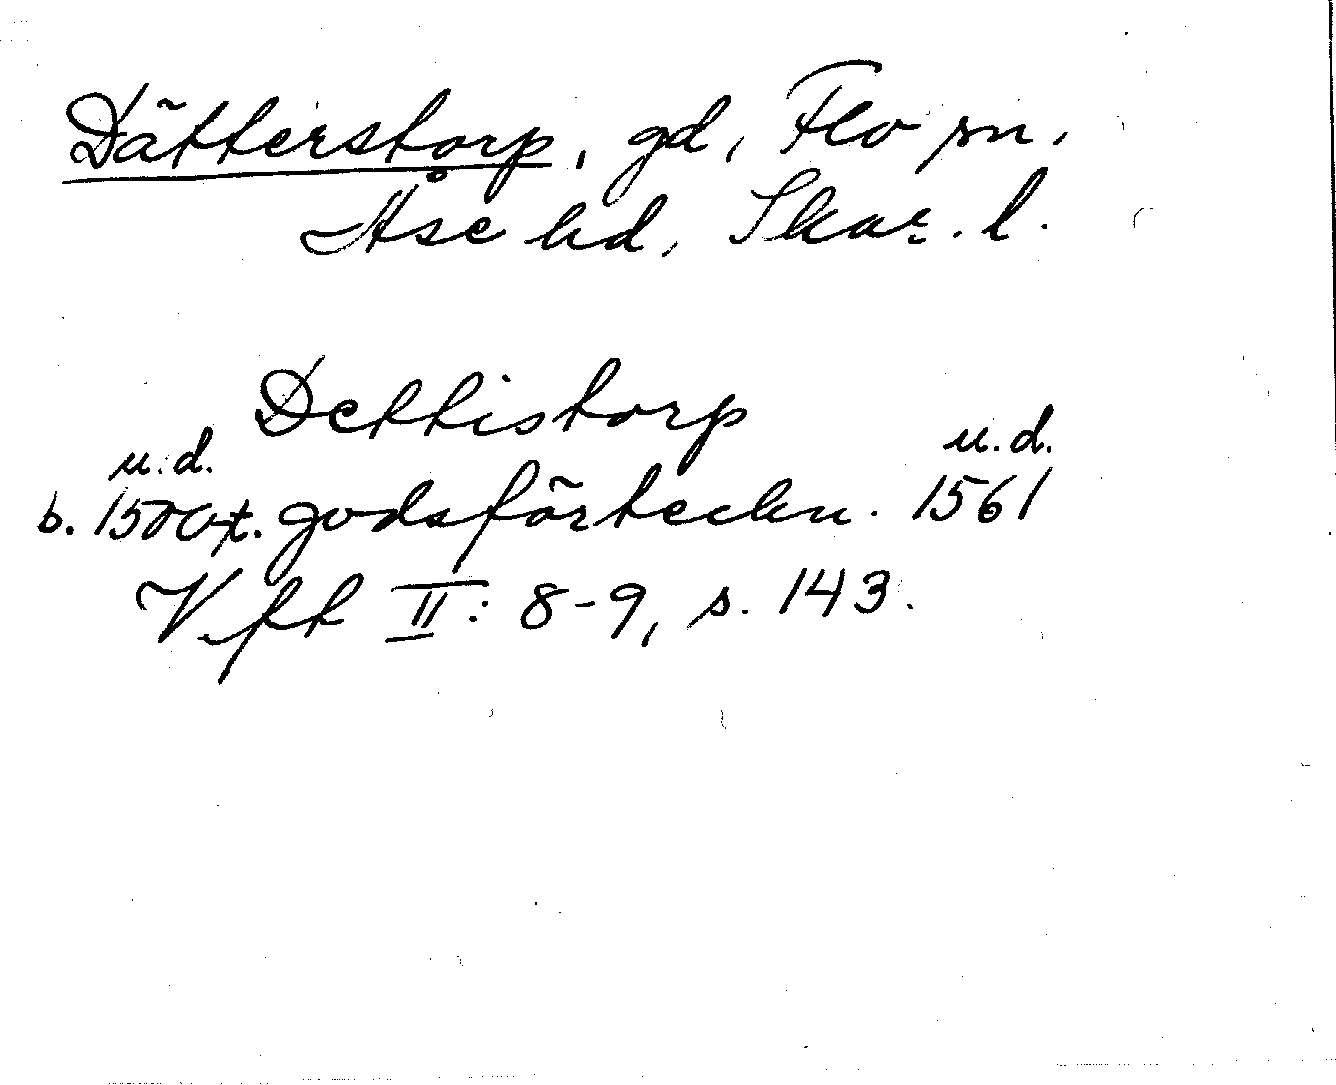 Dätterstorp, gd, Flo sn,
Åse hd, Skar. l.
Dettistorp
u.d. u.d.
b. 1500-t. godsförteckn. 1561
Vft II: 8-9, s. 143.